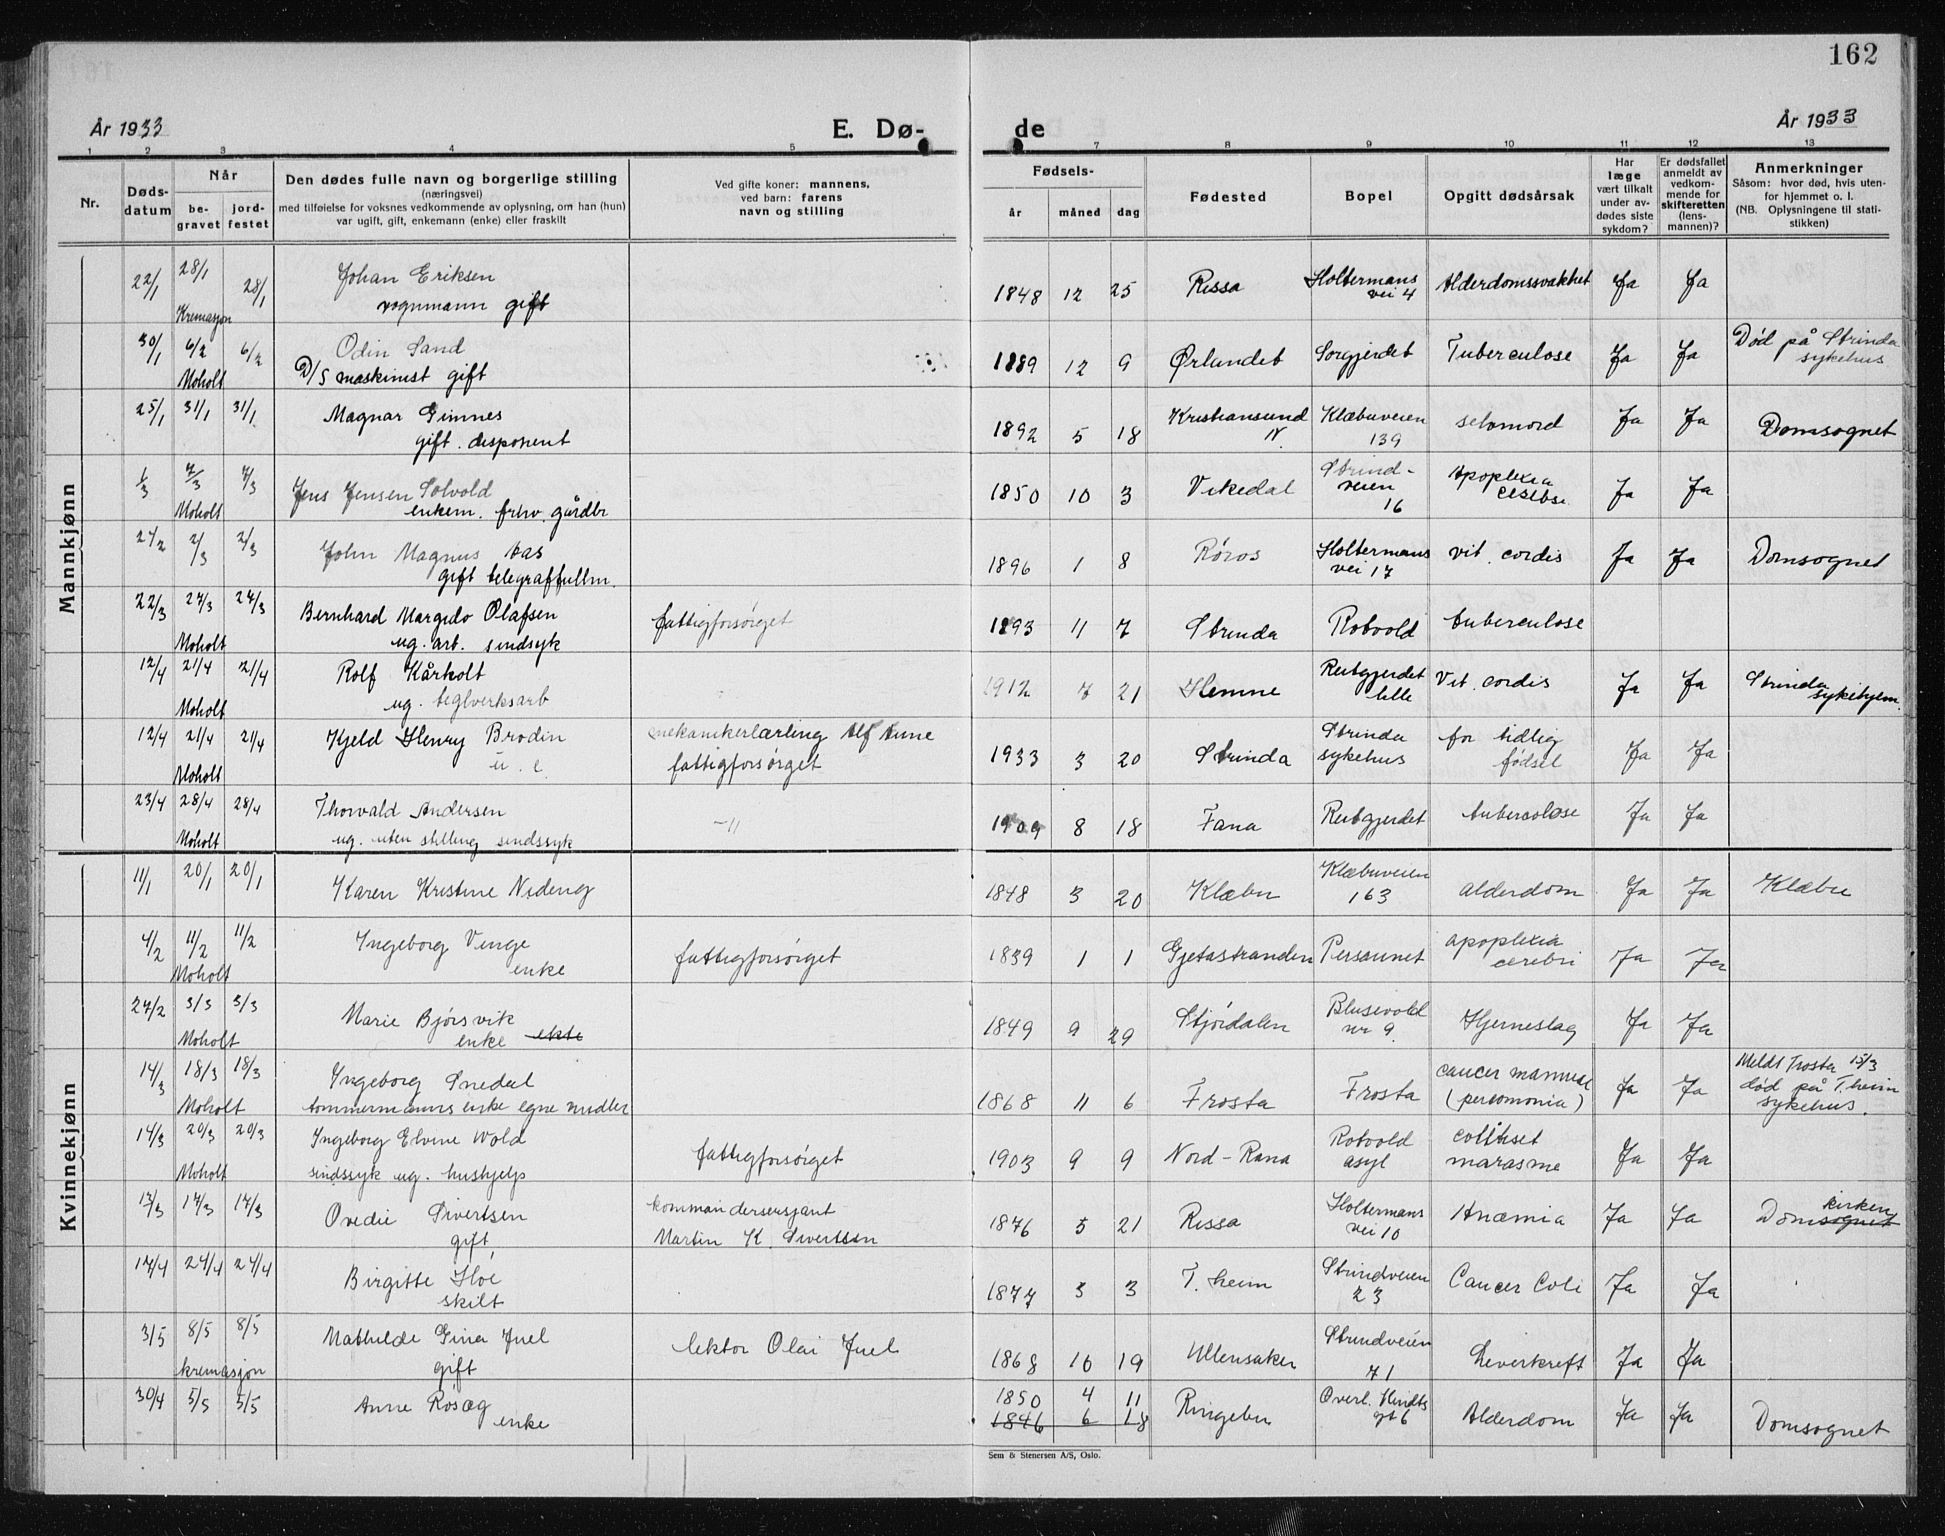 162
År 1933
E. Dø-
de
År 1933
1 2 3 4 5 7 8 9 10 11 12 13
Nr.
Døds-
datum
Når
be-
gravet
jord-
festet
Den dødes fulle navn og borgerlige stilling
(næringsvei)
med tilføielse for voksnes vedkommende av oplysning, om han (hun)
var ugift, gift, enkemann (enke) eller fraskilt
Ved gifte koner: mannens,
ved barn: farens
navn og stilling
Fødsels-
år måned dag
Fødested
Bopel
Opgitt dødsårsak
Har
læge
vært tilkalt
under av-
dødes siste
sykdom?
Er dødsfallet
anmeldt av
vedkom-
mende for
skifteretten
(lens-
mannen)?
Anmerkninger
Såsom: hvor død, hvis uten-
for hjemmet o. l.
(NB. Oplysningene til stati-
stikken)
Mannkjønn
22/1 28/1 28/1 Johan Eriksen 1848 12 25 Rissa Holtermans Alderdomssvakhet Ja Ja
Kremasjon vognmann gift vei 4
30/1 6/2 6/2 Odin Sand 1889 12 9 Ørlandet Sorgjerdet Tuberculose Ja Ja Død på Strinda
Moholt D/S maskinist gift sykehus
25/1 31/1 31/1 Magnar Gimnes 1892 5 18 Kristiansund Klæbuveien selvmord Ja Ja Domsognet
gift. disponent N. 139
1/3 7/3 7/3 Jens Jensen Solvold 1850 10 3 Vikedal Strind- Apoplexia Ja Ja
Moholt enkem. frhv. gårdbr veien
16
27/2 2/3 2/3 John Magnus Aas 1896 1 8 Røros Holtermans vit. cordis Ja Ja Domsognet
gift telegraffullm. vei 17
22/3 27/3 27/3 Bernhard Margido Olafsen fattigforsørget 1893 11 7 Strinda Rotvold Tuberculose
Moholt ug. arb. sindsyk
12/4 21/4 21/4 Rolf Kårholt 1912 7 21 Hemne Reitgjerdet Vit. cordis Ja Ja Strinda
Moholt ug. teglverksarb lille
12/4 21/4 21/4 Kjeld Henry Brodin mekanikerlærling Alf Aune 1933 3 20 Strinda Strinda for tidlig Ja Ja
Moholt u. e. fattigforsørget sykehus fødsel
23/4 28/4 28/4 Thorvald Andersen -" 1909 8 18 Fana Reitgjerdet Tuberculose Ja Ja
Moholt ug. uten stilling sindssyk
Kvinnekjønn
11/1 20/1 20/1 Karen Kristine Nideng 1848 3 20 Klæbu Klæbuveien alderdom Ja Ja Klæbu
163
4/2 11/2 11/2 Ingeborg Vinge fattigforsørget 1839 1 1 Gjetastranden Persaunet apoplexia Ja Ja
Moholt enke cerebri
27/2 3/3 3/3 Marie Bjørsvik 1849 9 29 Stjørdalen Blusevold Hjerneslag Ja Ja
Moholt enke nr 9
14/3 18/3 18/3 Ingeborg Snedal 1868 11 6 Frosta Frosta cancer mammae Ja Ja Meldt Frosta 15/3
Moholt tømmermanns enke egne midler død på T.heim
sykehus.
14/3 20/3 20/3 Ingeborg Elvine Wold fattigforsørget 1903 9 9 Nord-Rana Rotvold marasme Ja Ja
Moholt sindssyk ug. hushjelp asyl
13/3 17/3 17/3 Ovedie Sivertsen kommandersersjant 1876 5 21 Rissa Holtermans Anæmia Ja Ja Domsognet kirken
gift Martin K. Sivertsen vei 10
17/4 24/4 24/4 Birgitte Hoe 1877 3 3 T.heim Strindveien Cancer Coli Ja Ja
skilt 23
3/5 8/5 8/5 Mathilde Gina Juel lektor Olai Juel 1868 10 19 Ullensaker Strindveien Leverkreft Ja Ja
kremasjon gift 71
30/4 5/5 5/5 Anne Rosæg 1850 4 11 Ringebu Overl. Kindts Alderdom Ja Ja Domsognet
enke 1846 6 18 gt 6
Sem & Stenersen A/S, Oslo.